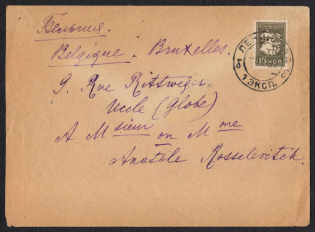 Бельгия.
Belgique. Bruxelles.
9. Rue Rittweger
Uccle (Globe)
A Msieur ou Mme
Anatole Rosselevitch.
15 КОП.
1 ЭКСП.